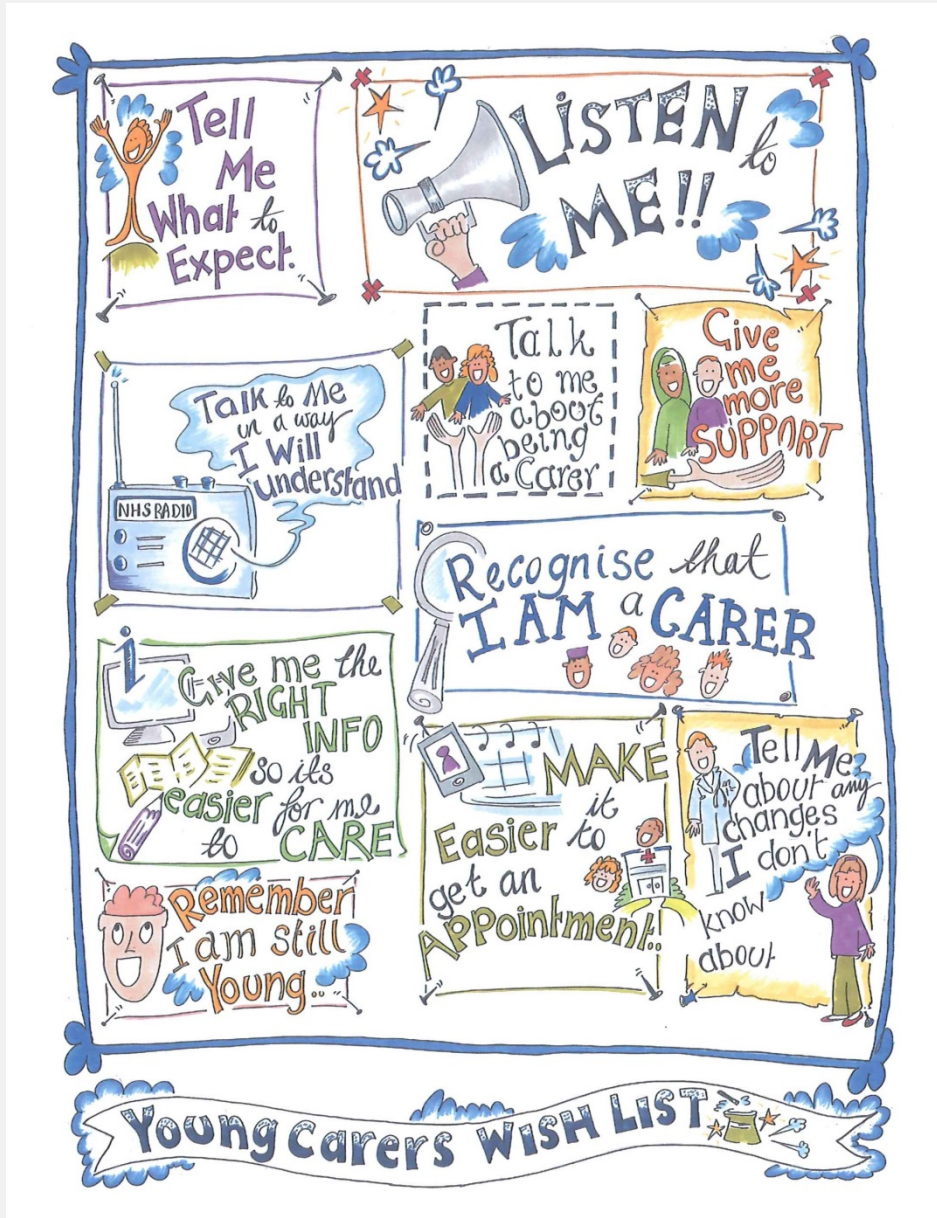 Tell
Me
What to
Expect.
LISTEN to
ME!!
Talk to Me
in a way
I Will
understand
NHS RADIO
Talk
to me
about
being
a Carer
Give
me
more
SUPPORT
Recognise that
I AM a CARER
i
Give me the
RIGHT
INFO
so its
easier for me
to CARE
MAKE
Easier it to
get an
APPointment!!
Tell Me
about any
changes
I don't
know
about
Remember
I am still
Young..
Young Carers WISH LIST